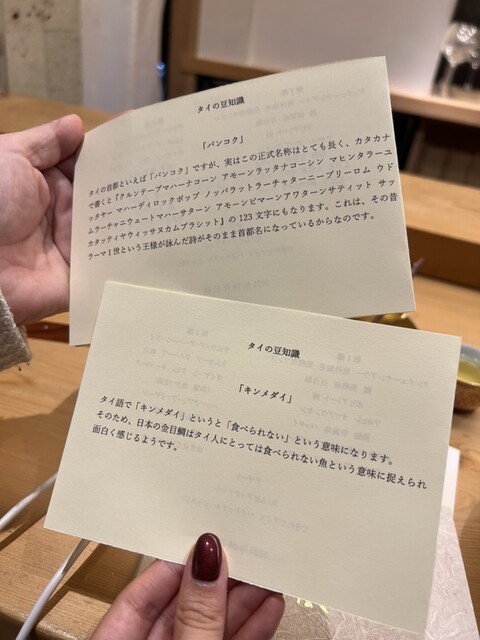 タイの豆知識
「バンコク」
タイの首都といえば「バンコク」ですが、実はこの正式名称はとても長く、カタカナ
で書くと『クルンテープマハーナコーン アモーンラッタナコーシン マヒンタラーユ
ッタヤー マハーディロックポップ ノッパラットラーチャターニーブリーロム ウド
ムラーチャニウェートマハーサターン アモーンピマーンアワターンサティット サッ
カタッティヤウィッサヌカムプラシット』の 123 文字にもなります。これは、その昔
ラーマ1世という王様が詠んだ詩がそのまま首都名になっているからなのです。
タイの豆知識
「キンメダイ」
タイ語で「キンメダイ」というと「食べられない」という意味になります。
そのため、日本の金目鯛はタイ人にとっては食べられない魚という意味に捉えられ
面白く感じるようです。